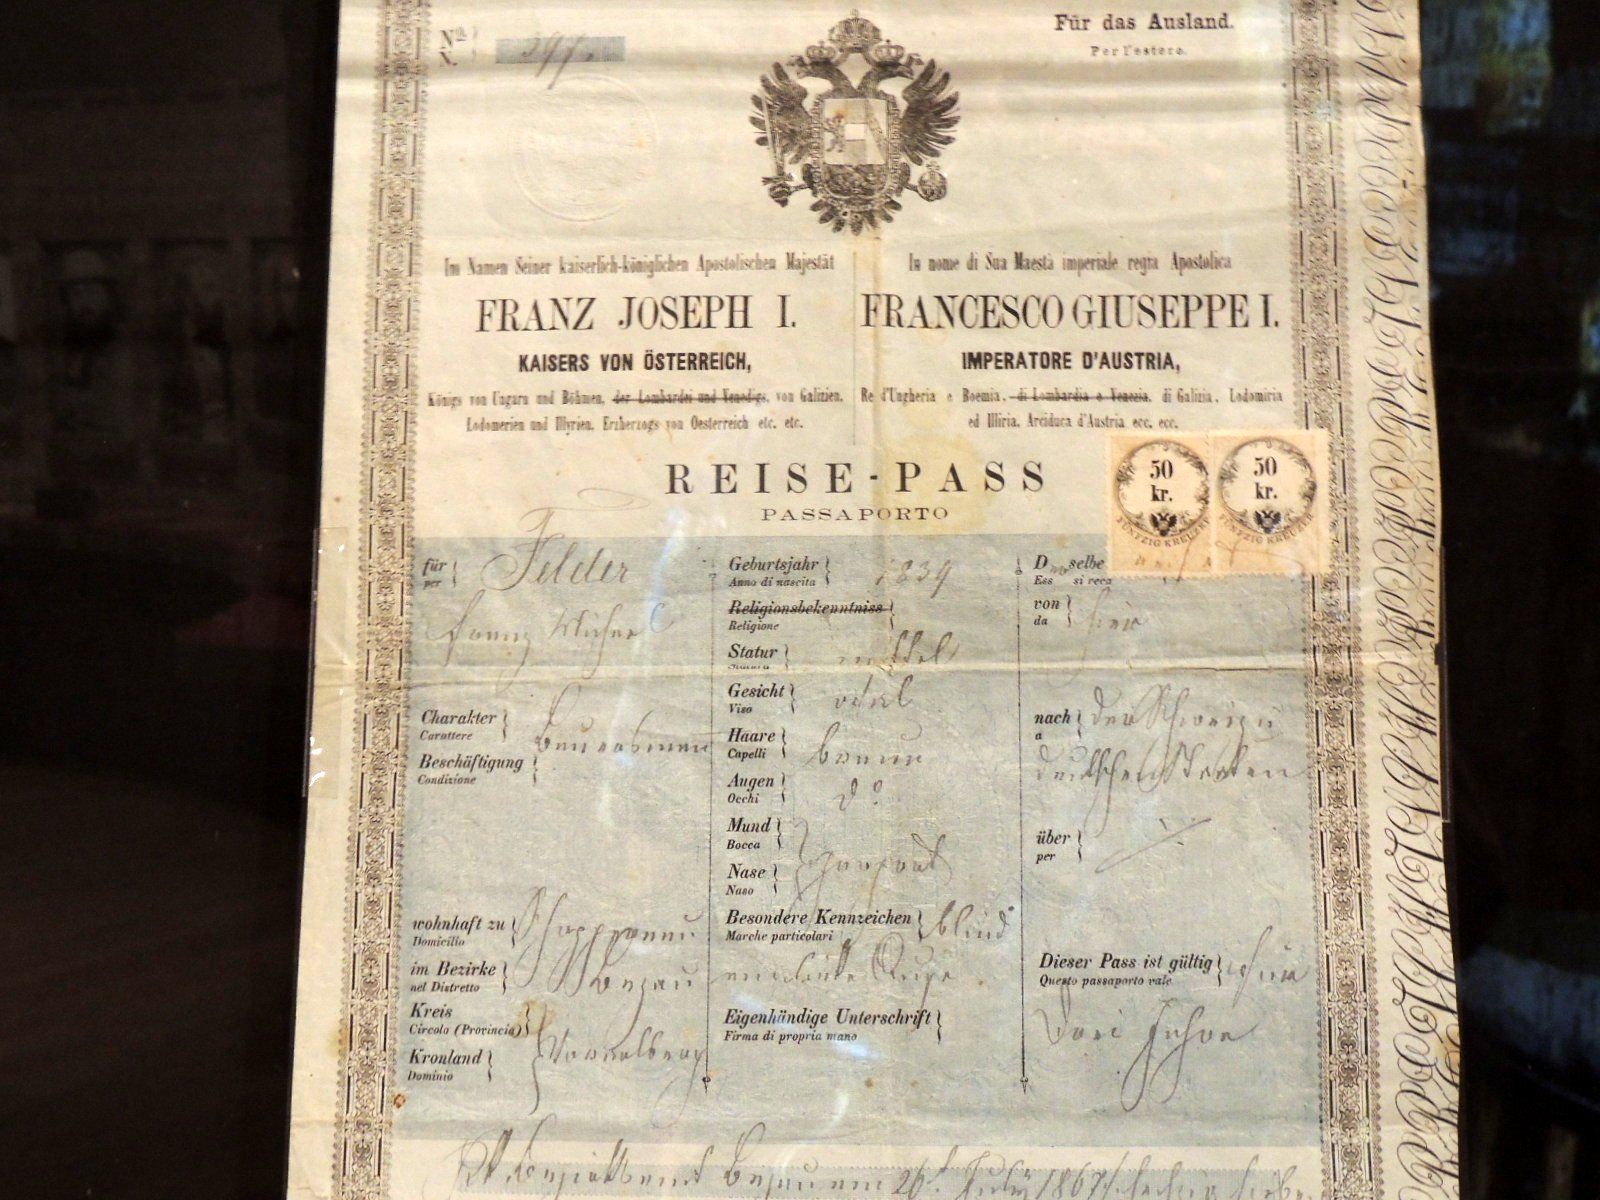 Für das Ausland.
Per l'estero.
No.
N.
Im Namen Seiner kaiserlich-königlichen Apostolischen Majestät
FRANZ JOSEPH I.
KAISERS VON ÖSTERREICH,
Königs von Ungarn und Böhmen, der Lombardei und Venedigs, von Galizien,
Lodomerien und Illyrien, Erzherzogs von Oesterreich etc. etc.
In nome di Sua Maestà imperiale regia Apostolica
FRANCESCO GIUSEPPE I.
IMPERATORE D'AUSTRIA,
Re d'Ungheria e Boemia, di Lombardia e Venezia, di Galizia, Lodomiria
ed Illiria, Arciduca d'Austria ecc. ecc.
50
kr.
FÜNFZIG KREUZER
50
kr.
FÜNFZIG KREUZER
REISE-PASS
PASSAPORTO
für Felder
per
Franz Michael
Charakter
Carattere
Bauersmann
Beschäftigung
Condizione
wohnhaft zu Schoppernau
Domicilio
im Bezirke Bezau
nel Distretto
Kreis
Circolo (Provincia)
Vorarlberg
Kronland
Dominio
Geburtsjahr 1839
Anno di nascita
Religionsbekenntniss
Religione
Statur mittel
Gesicht oval
Viso
Haare braun
Capelli
Augen do
Occhi
Mund
Bocca
proport
Nase
Naso
Besondere Kennzeichen blind
Marche particolari
Auge
Eigenhändige Unterschrift
Firma di propria mano
Derselbe
Ess si reca
von hier
da
nach der Schweiz u
a
deutschen Staaten
über
per
Dieser Pass ist gültig
Questo passaporto vale
Drei Jahre
Bezirksamt Bezau am 26t July 1867